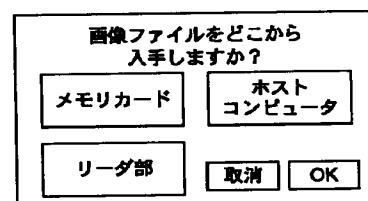 画像ファイルをどこから
入手しますか？
メモリカード
ホスト
コンピュータ
リーダ部
取消
OK